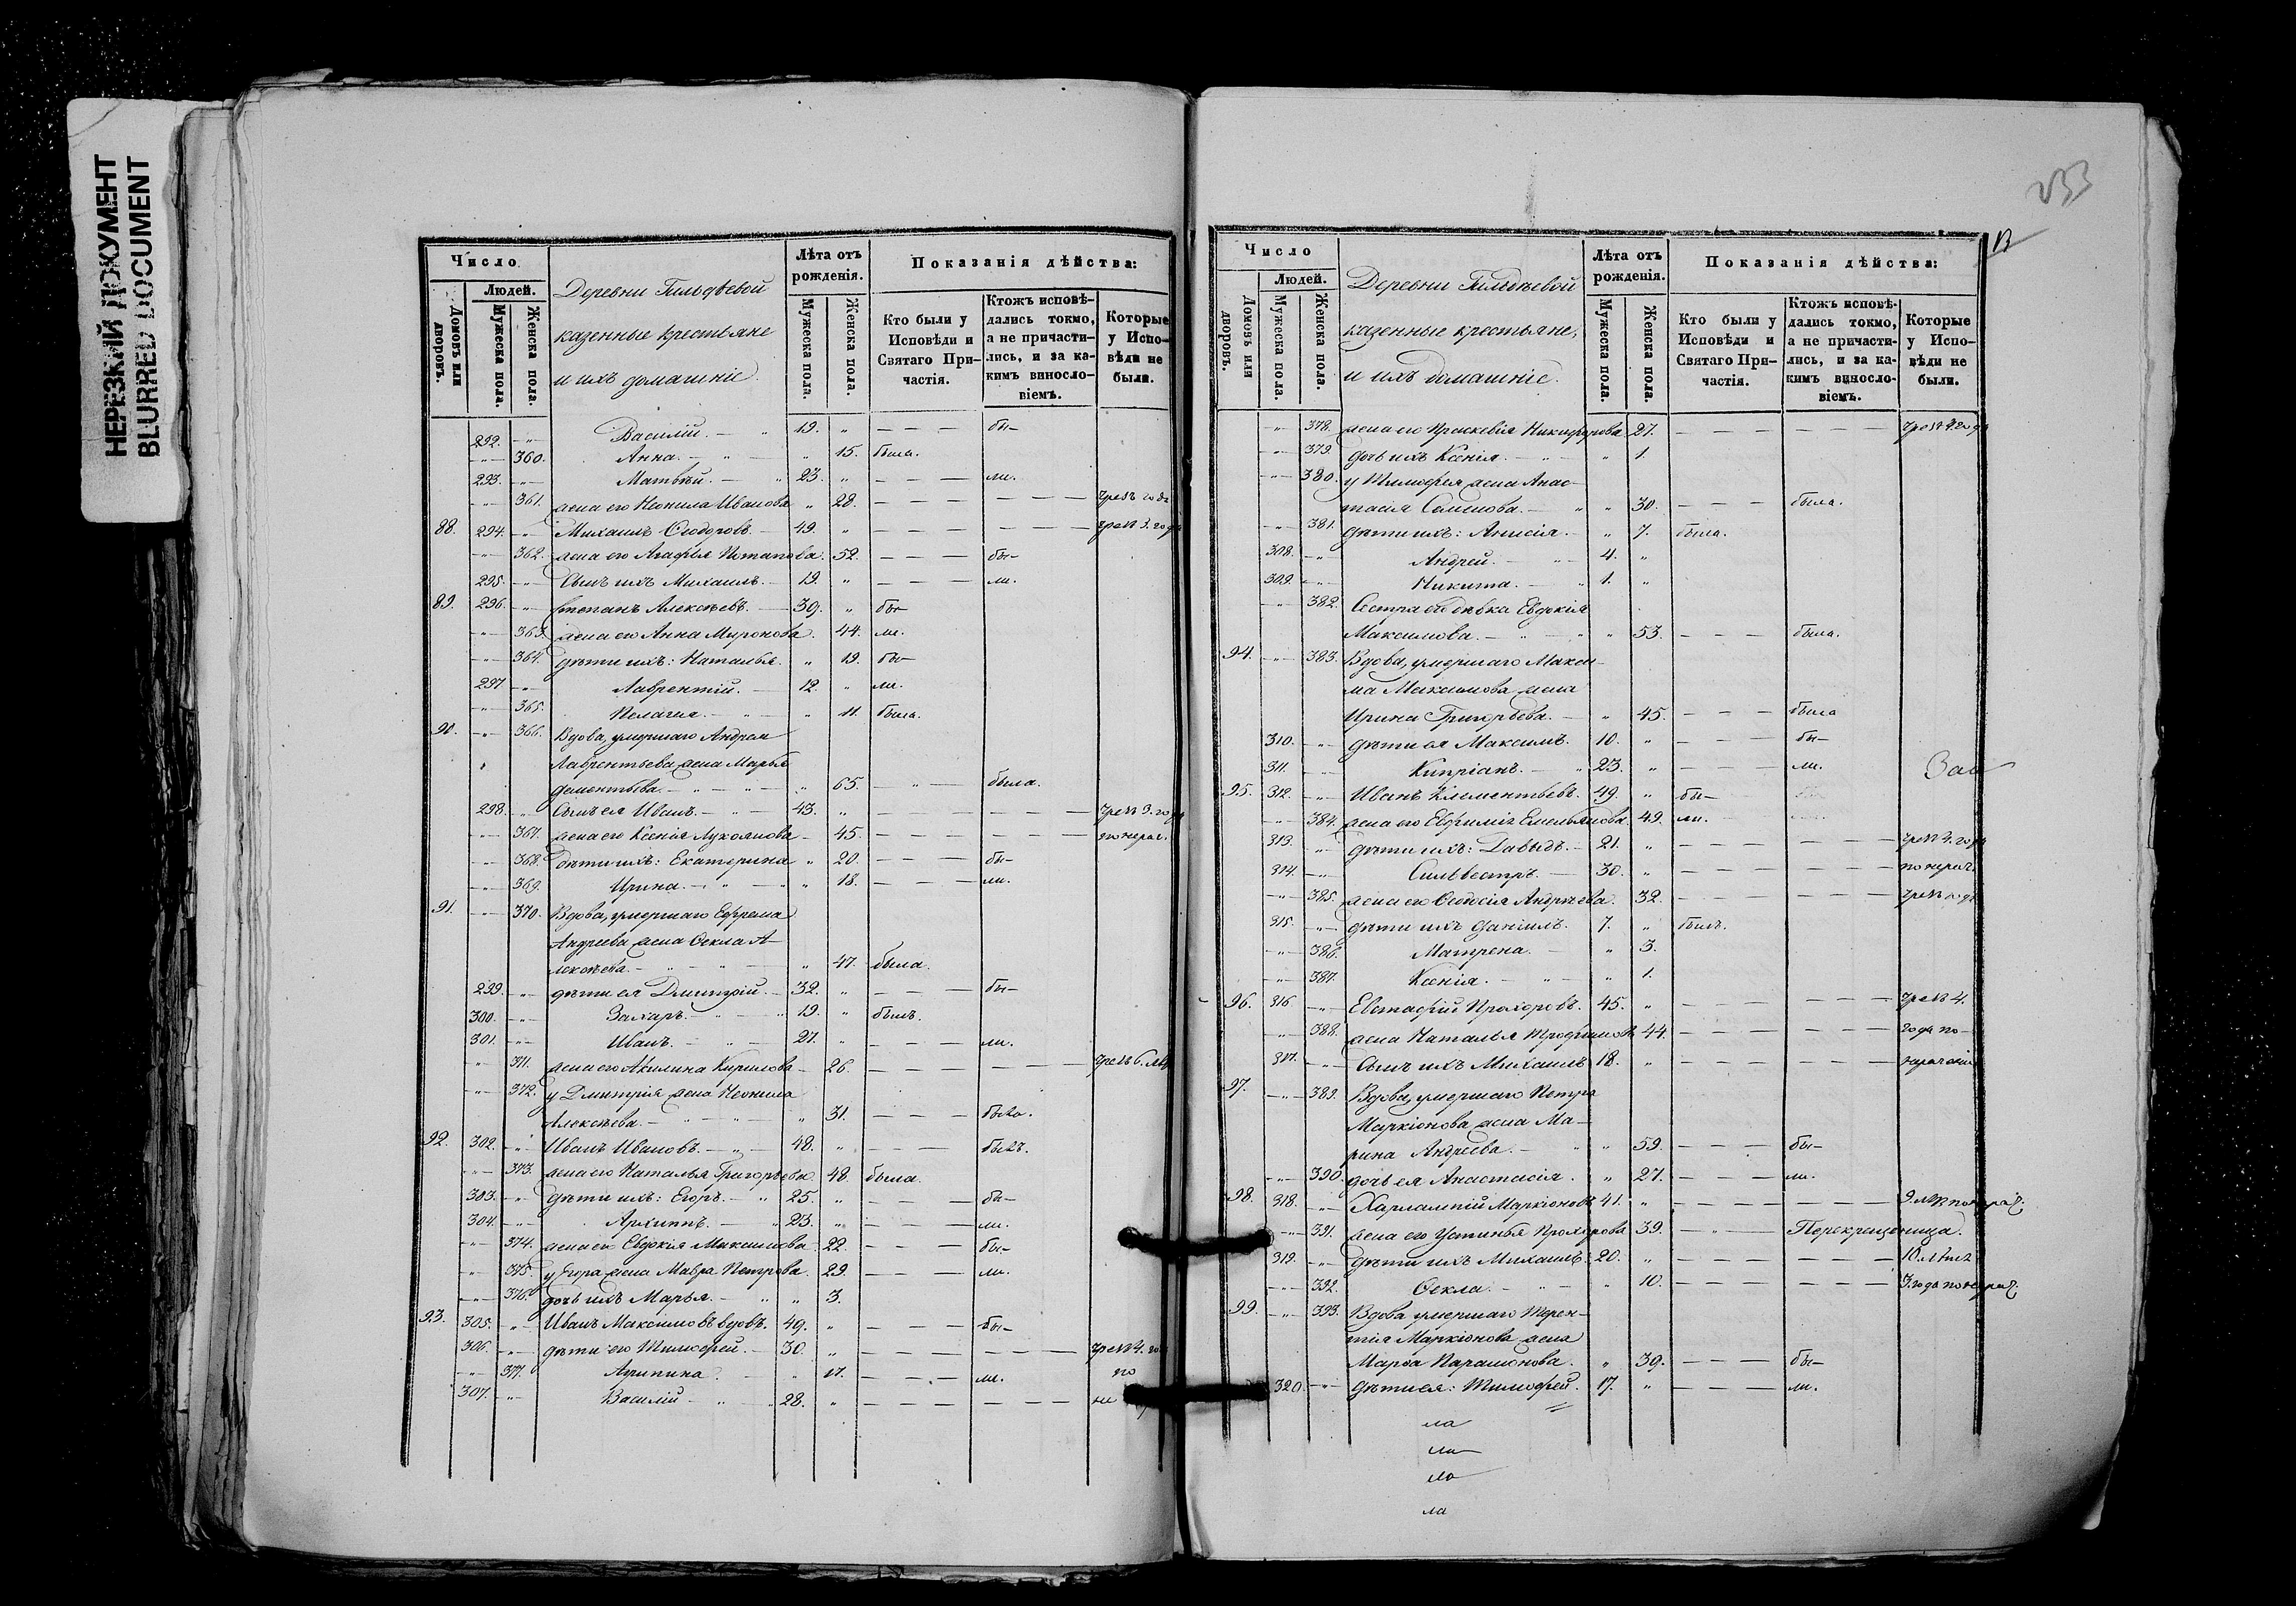 НЕРЕЗКИЙ ДОКУМЕНТ
BLURRED DOCUMENT
Число
Людей.
Домовъ или дворовъ.
Мужеска пола.
Женска пола.
Деревни Гильдѣевой
казенные крестьяне
и ихъ домашніе.
Лѣта отъ рожденія.
Мужеска пола.
Женска пола.
Показанія дѣйства:
Кто были у Исповѣди и Святаго Причастія.
Ктожъ исповѣдались токмо, а не причастились, и за какимъ винословіемъ.
Которые у Исповѣди не были.
292. —"— Василій. — " 19. " — — — бы—
—"— 360. Анна. — " — " 15. была.
293. —"— Матвѣй. — " 23. " — — — ли.
—"— 361. жена его Неонила Иванова " 28. — — — — — —
88. 294. —"— Михаилъ Ѳеодоровъ. — 49. " — — — — — — чрезъ 3. года
—"— 362. жена его Агафья Потапова. 52. — — — бы—
295. —"— Сынъ ихъ Михаилъ. — 19. " — — — ли.
89. 296. —"— Степанъ Алексѣевъ. — 39. " бы—
—"— 363. жена его Анна Миронова. 44. ли.
—"— 364. дѣти ихъ: Наталья. " 19. бы—
297 —"— Лаврентій. — 12. " ли.
—"— 365. Пелагея. — " — " 11. была.
90. —"— 366. Вдова, умершаго Андрея
Лаврентьева жена Марья
Дементьева. — " — " — " 65. — " — была.
298. —"— Сынъ ея Иванъ. — " — 43. " — — — — — — чрезъ 3. года
—"— 367. жена его Ксенія Лукоянова — 45. — — — — — — по нерас.
—"— 368. дѣти ихъ: Екатерина " 20. — — — бы—
—"— 369. Ирина. — " — " 18. — — — ли.
91. —"— 370. Вдова, умершаго Ефрема
Андреева жена Ѳекла А—
лексѣева. — " — " — " 47. — была.
299. —"— дѣти ея Дмитрій. — 32. " — — — бы—
300. —"— Захаръ. — " — " 19. " былъ.
301. —"— Иванъ. — " — 21. " — — — ли.
" 371. жена его Акилина Кирилова — 26. — — — — — — чрезъ 6. лѣт
—"— 372. у Дмитрія жена Неонила
Алексѣева. — " — " — " 31. — — — была.
92. 302. —"— Иванъ Ивановъ. — " — 48. " — — — былъ.
—"— 373. жена его Наталья Григорьева 48. была.
303. —"— дѣти ихъ: Егоръ. — " 25. " — — — бы—
304. —"— Архиппъ. — " 23. " — — — ли.
—"— 374. жена его Евдокія Максимова 22. — — — бы—
—"— 375. у Егора жена Мавра Петрова. 29. — — — ли.
—"— 376. дочь ихъ Марья. — " " 3.
93. 305. —"— Иванъ Максимовъ вдовъ. 49. " — — — бы—
306. —"— дѣти его Тимоѳей. — 30. " — — — — — — чрезъ 4. го
—"— 377. Агрипина. — " 17. — — — ли. по
307. —"— Василій — " — " 28. " — — — — — — не
233
Число
Людей.
Домовъ или дворовъ.
Мужеска пола.
Женска пола.
Деревни Гильдѣевой
казенные крестьяне,
и ихъ домашніе.
Лѣта отъ рожденія.
Мужеска пола.
Женска пола.
Показанія дѣйства:
Кто были у Исповѣди и Святаго Причастія.
Ктожъ исповѣдались токмо, а не причастились, и за какимъ винословіемъ.
Которые у Исповѣди не были.
—"— 378. жена его Праскевія Никифорова 27. — — — — — — чрезъ 2. года
—"— 379. дочь ихъ Ксенія. — " — " 1.
—"— 380. у Тимофея жена Анас—
тасія Семенова. — " " 30. — — — была.
—"— 381. дѣти ихъ: Анисія. — " 7. была.
308. —"— Андрей. — " — 4. "
309. —"— Никита. — " 1. "
—"— 382. Сестра его дѣвка Евдокія
Максимова. — " — " " 53. — — — была.
94. —"— 383. Вдова, умершаго Макси—
ма Максимова жена
Ирина Григорьева. — " 45. — — — была
310. —"— дѣти ея Максимъ. 10. " — — — бы—
311. —"— Кипріанъ. — " 23. " — — — ли.
95. 312. —"— Иванъ Клементьевъ. 49. " бы—
—"— 384. жена его Евфимія Емельянова. 49. ли.
313. —"— дѣти ихъ: Давыдъ. — 21. " — — — — — — чрезъ 4. года
314. —"— Сильвестръ. — 30. " — — — — — — по нерач.
—"— 385. жена его Ѳеодосія Андрѣева. 32. — — — — — —
315. —"— дѣти ихъ Даніилъ. 7. " былъ.
—"— 386. Матрена. — " 3.
—"— 387. Ксенія. — " — " 1.
96. 316. —"— Евстафій Прохоровъ. 45. " — — — — — — чрезъ 4.
—"— 388. жена Наталья Трофимова 44. — — — — — — года по—
317. —"— Сынъ ихъ Михаилъ 18. " — — — — — —
97. —"— 389. Вдова, умершаго Петра
Маркіонова жена Ма—
рина Андреева. — " 59. — — — бы—
—"— 390. дочь ея Анастасія. " 27. — — — ли.
98. 318. —"— Харлампій Маркіоновъ 41. " — — — — — —
—"— 391. жена его Устинья Прохорова 39. — " — Перекрещеница.
319. —"— дѣти ихъ Михаилъ. 20. " — — — — — — 10. лѣтъ
—"— 392. Ѳекла. — " — " 10. — — — — — — 3. года по нерач.
99. —"— 393. Вдова умершаго Терен—
тія Маркіонова жена
Марѳа Парамонова. " 39. — — — бы—
320. —"— дѣти ея: Тимоѳей. 17. " — — — ли.
ла
ли
ла
ла